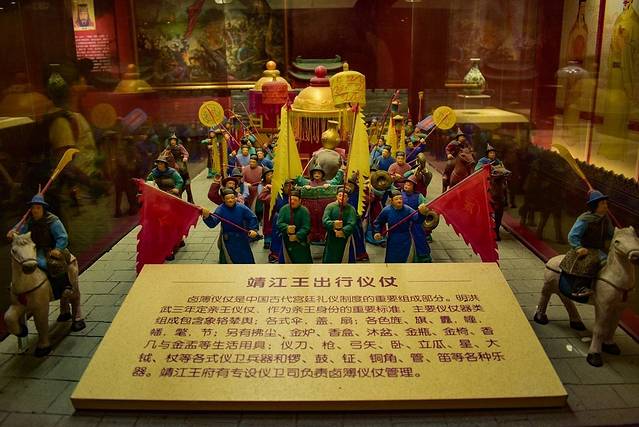 靖江王出行仪仗
卤簿仪仗是中国古代宫廷礼仪制度的重要组成部分。明洪
武三年定亲王仪仗，作为亲王身份的重要标准，主要仪仗器类
组成包含象辂辇舆；各式伞、盖、扇；各色旌、旗、纛、幢、
幡、氅、节；另有拂尘、金炉、香盒、沐盆、金瓶、金椅、香
几与金盂等生活用具；仪刀、枪、弓矢、卧、立瓜、星、大
钺、杖等各式仪卫兵器和锣、鼓、钲、铜角、管、笛等各种乐
器。靖江王府有专设仪卫司负责卤簿仪仗管理。